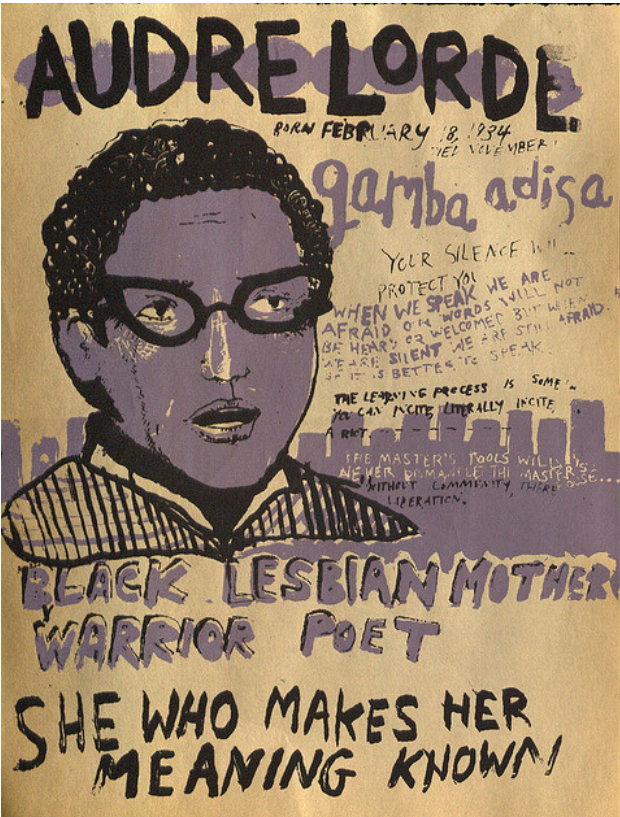 AUDRE LORDE
BORN FEBRUARY 18, 1934
NOVEMBER
gamba adisa
YOUR SILENCE WI
PROTECT YOU
WHEN WE SPEAK WE ARE
AFRAID OUR WORDS WILL NOT
BE HEARD OR WELCOMED BUT WHEN
WE ARE SILENT WE ARE STILL AFRAID.
IT IS BETTER TO SPEAK.
THE LEARNING PROCESS IS SOME
YOU CAN INCITE, LITERALLY INCITE,
A RIOT.
THE MASTER'S TOOLS WILL
NEVER DISMANTLE THE MASTER'S
WITHOUT COMMUNITY, THERE
LIBERATION.
BLACK LESBIAN MOTHER
WARRIOR POET
SHE WHO MAKES HER
MEANING KNOWN